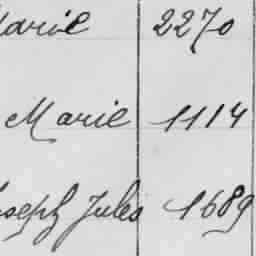 Marie 2270
Marie 1114
Joseph Jules 1689